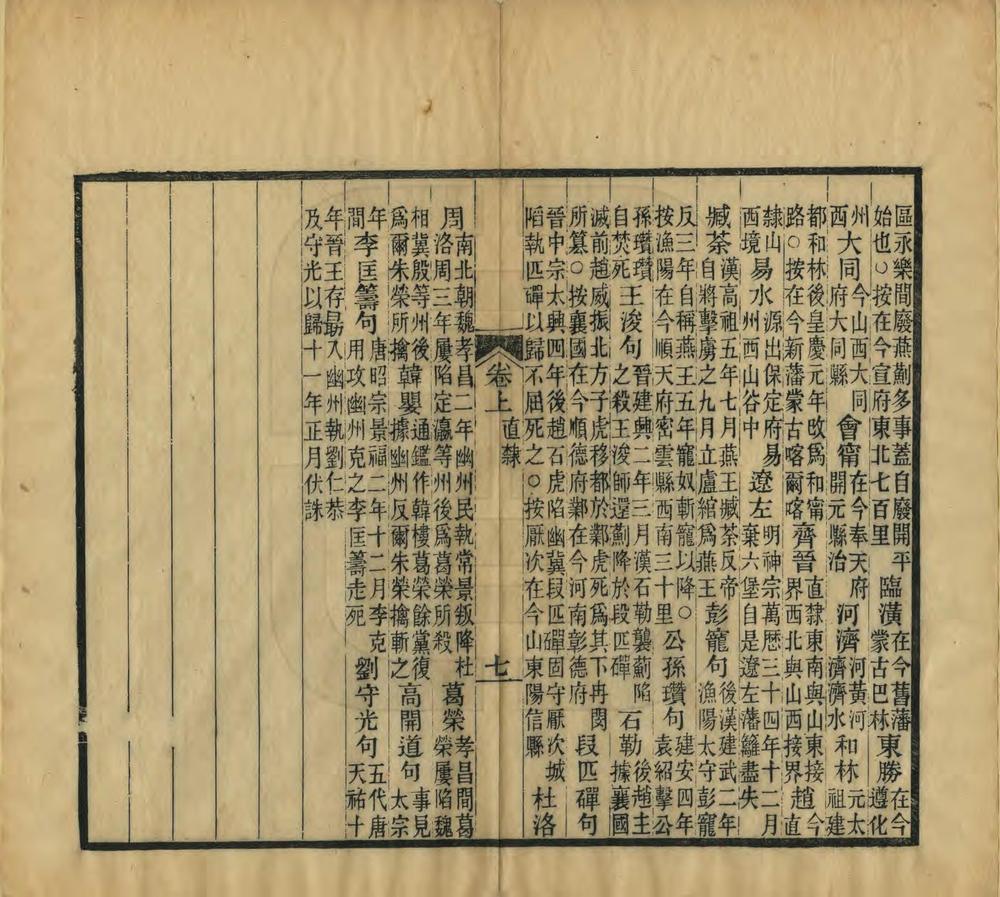 區永樂間廢燕薊多事蓋自廢開平始也○按在今宣府東北七百里臨潢在今舊藩蒙古巴林東勝在今遵化
州西大同今山西大同府大同縣會甯在今奉天府開元縣治河濟河黃河濟濟水和林元太祖建
都和林後皇慶元年改爲和甯路○按在今新藩蒙古喀爾喀齊晉直隸東南與山東接界西北與山西接界趙今直
隸山西境易水源出保定府易州西山谷中遼左明神宗萬歷三十四年十二月棄六堡自是遼左藩籬盡失
臧荼漢高祖五年七月燕王臧荼反帝自將擊虜之九月立盧綰爲燕王彭寵句後漢建武二年漁陽太守彭寵
反三年自稱燕王五年寵奴斬寵以降○按漁陽在今順天府密雲縣西南三十里公孫瓚句建安四年袁紹擊公
孫瓚瓚自焚死王浚句晉建興二年三月漢石勒襲薊陷之殺王浚師還薊降於段匹磾石勒後趙主據襄國
滅前趙威振北方子虎移都於鄴虎死爲其下冉閔所篡○按襄國在今順德府鄴在今河南彰德府段匹磾句
晉中宗太興四年後趙石虎陷幽冀段匹磾固守厭次城陷執匹磾以歸不屈死之○按厭次在今山東陽信縣杜洛
卷上 直隸 七
周南北朝魏孝昌二年幽州民執常景叛降杜洛周三年屢陷定瀛等州後爲葛榮所殺葛榮孝昌間葛榮屢陷魏
相冀殷等州後爲爾朱榮所擒韓婁通鑑作韓樓葛榮餘黨復據幽州反爾朱榮擒斬之高開道句事見太宗
年間李匡籌句唐昭宗景福二年十二月李克用攻幽州克之李匡籌走死劉守光句五代唐天祐十
年晉王存勗入幽州執劉仁恭及守光以歸十一年正月伏誅